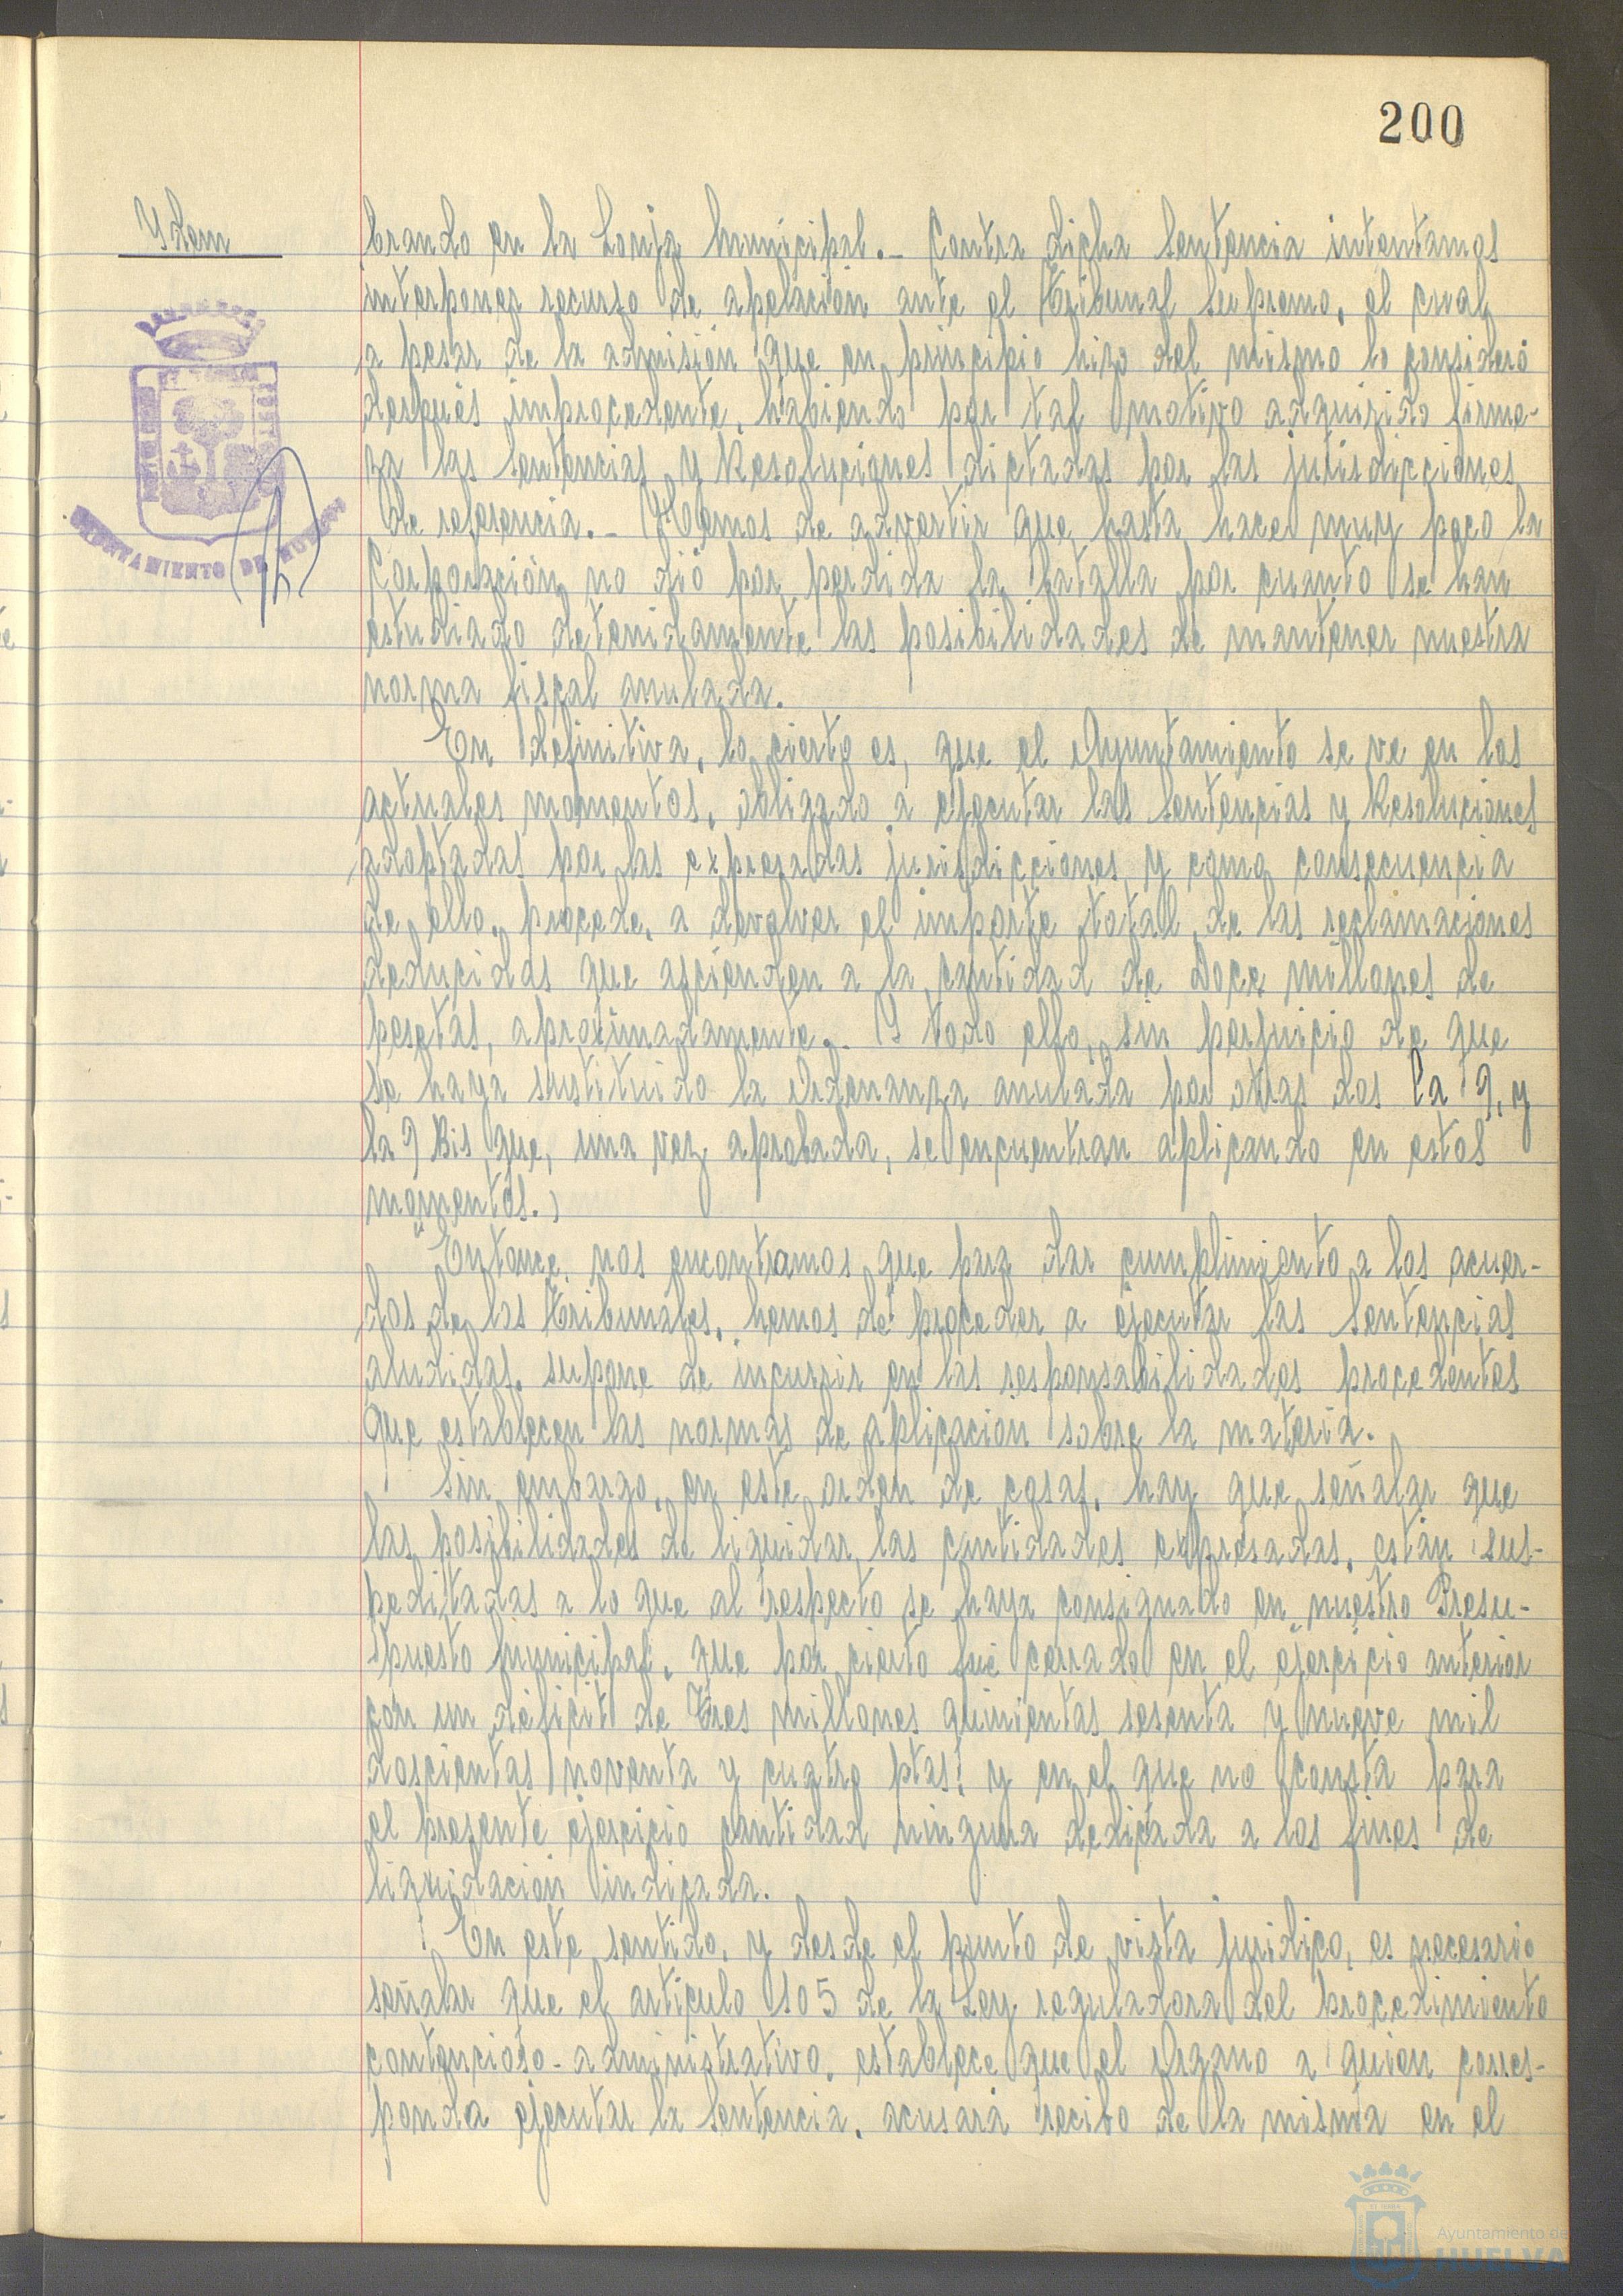 200
Ydem
brando en la Lonja Municipal.- Contra dicha Sentencia intentamos
interponer recurso de apelación ante el Tribunal Supremo, el cual
a pesar de la admisión que en principio hizo del mismo lo consideró
después improcedente, habiendo por tal motivo adquirido firme-
za las Sentencias y Resoluciones dictadas por las jurisdicciones
de referencia.- Hemos de advertir que hasta hace muy poco la
Corporación no dió por perdida la batalla por cuanto se han
estudiado detenidamente las posibilidades de mantener nuestra
norma fiscal anulada.
En definitiva, lo cierto es, que el Ayuntamiento se ve en los
actuales momentos, obligado a ejecutar las Sentencias y Resoluciones
adoptadas por las expresadas jurisdicciones y como consecuencia
de ello, procede, a devolver el importe total de las reclamaciones
deducidas que ascienden a la cantidad de Doce millones de
pesetas, aproximadamente.- Y todo ello, sin perjuicio de que
se haya sustituido la Ordenanza anulada por otras dos la 9, y
la 9 Bis que, una vez aprobada, se encuentran aplicando en estos
momentos.
Entonce nos encontramos que para dar cumplimiento a los acuer-
dos de los Tribunales, hemos de proceder a ejecutar las Sentencias
aludidas, supone de incurrir en las responsabilidades procedentes
que establecen las normas de aplicación sobre la materia.
Sin embargo, en este orden de cosas, hay que señalar que
las posibilidades de liquidar las cantidades expresadas, están sus-
peditadas a lo que al respecto se haya consignado en nuestro Presu-
puesto Municipal, que por cierto fué cerrado en el ejercicio anterior
con un déficit de Tres millones quinientas sesenta y nueve mil
doscientas noventa y cuatro ptas. y en el que no consta para
el presente ejercicio cantidad ninguna dedicada a los fines de
liquidación indicada.
En este sentido, y desde el punto de vista jurídico, es necesario
señalar que el artículo 105 de la Ley reguladora del procedimiento
contencioso-administrativo, establece que el Organo a quien corres-
ponda ejecutar la Sentencia, acusará recibo de la misma en el
AYUNTAMIENTO DE HUELVA
Ayuntamiento de
HUELVA